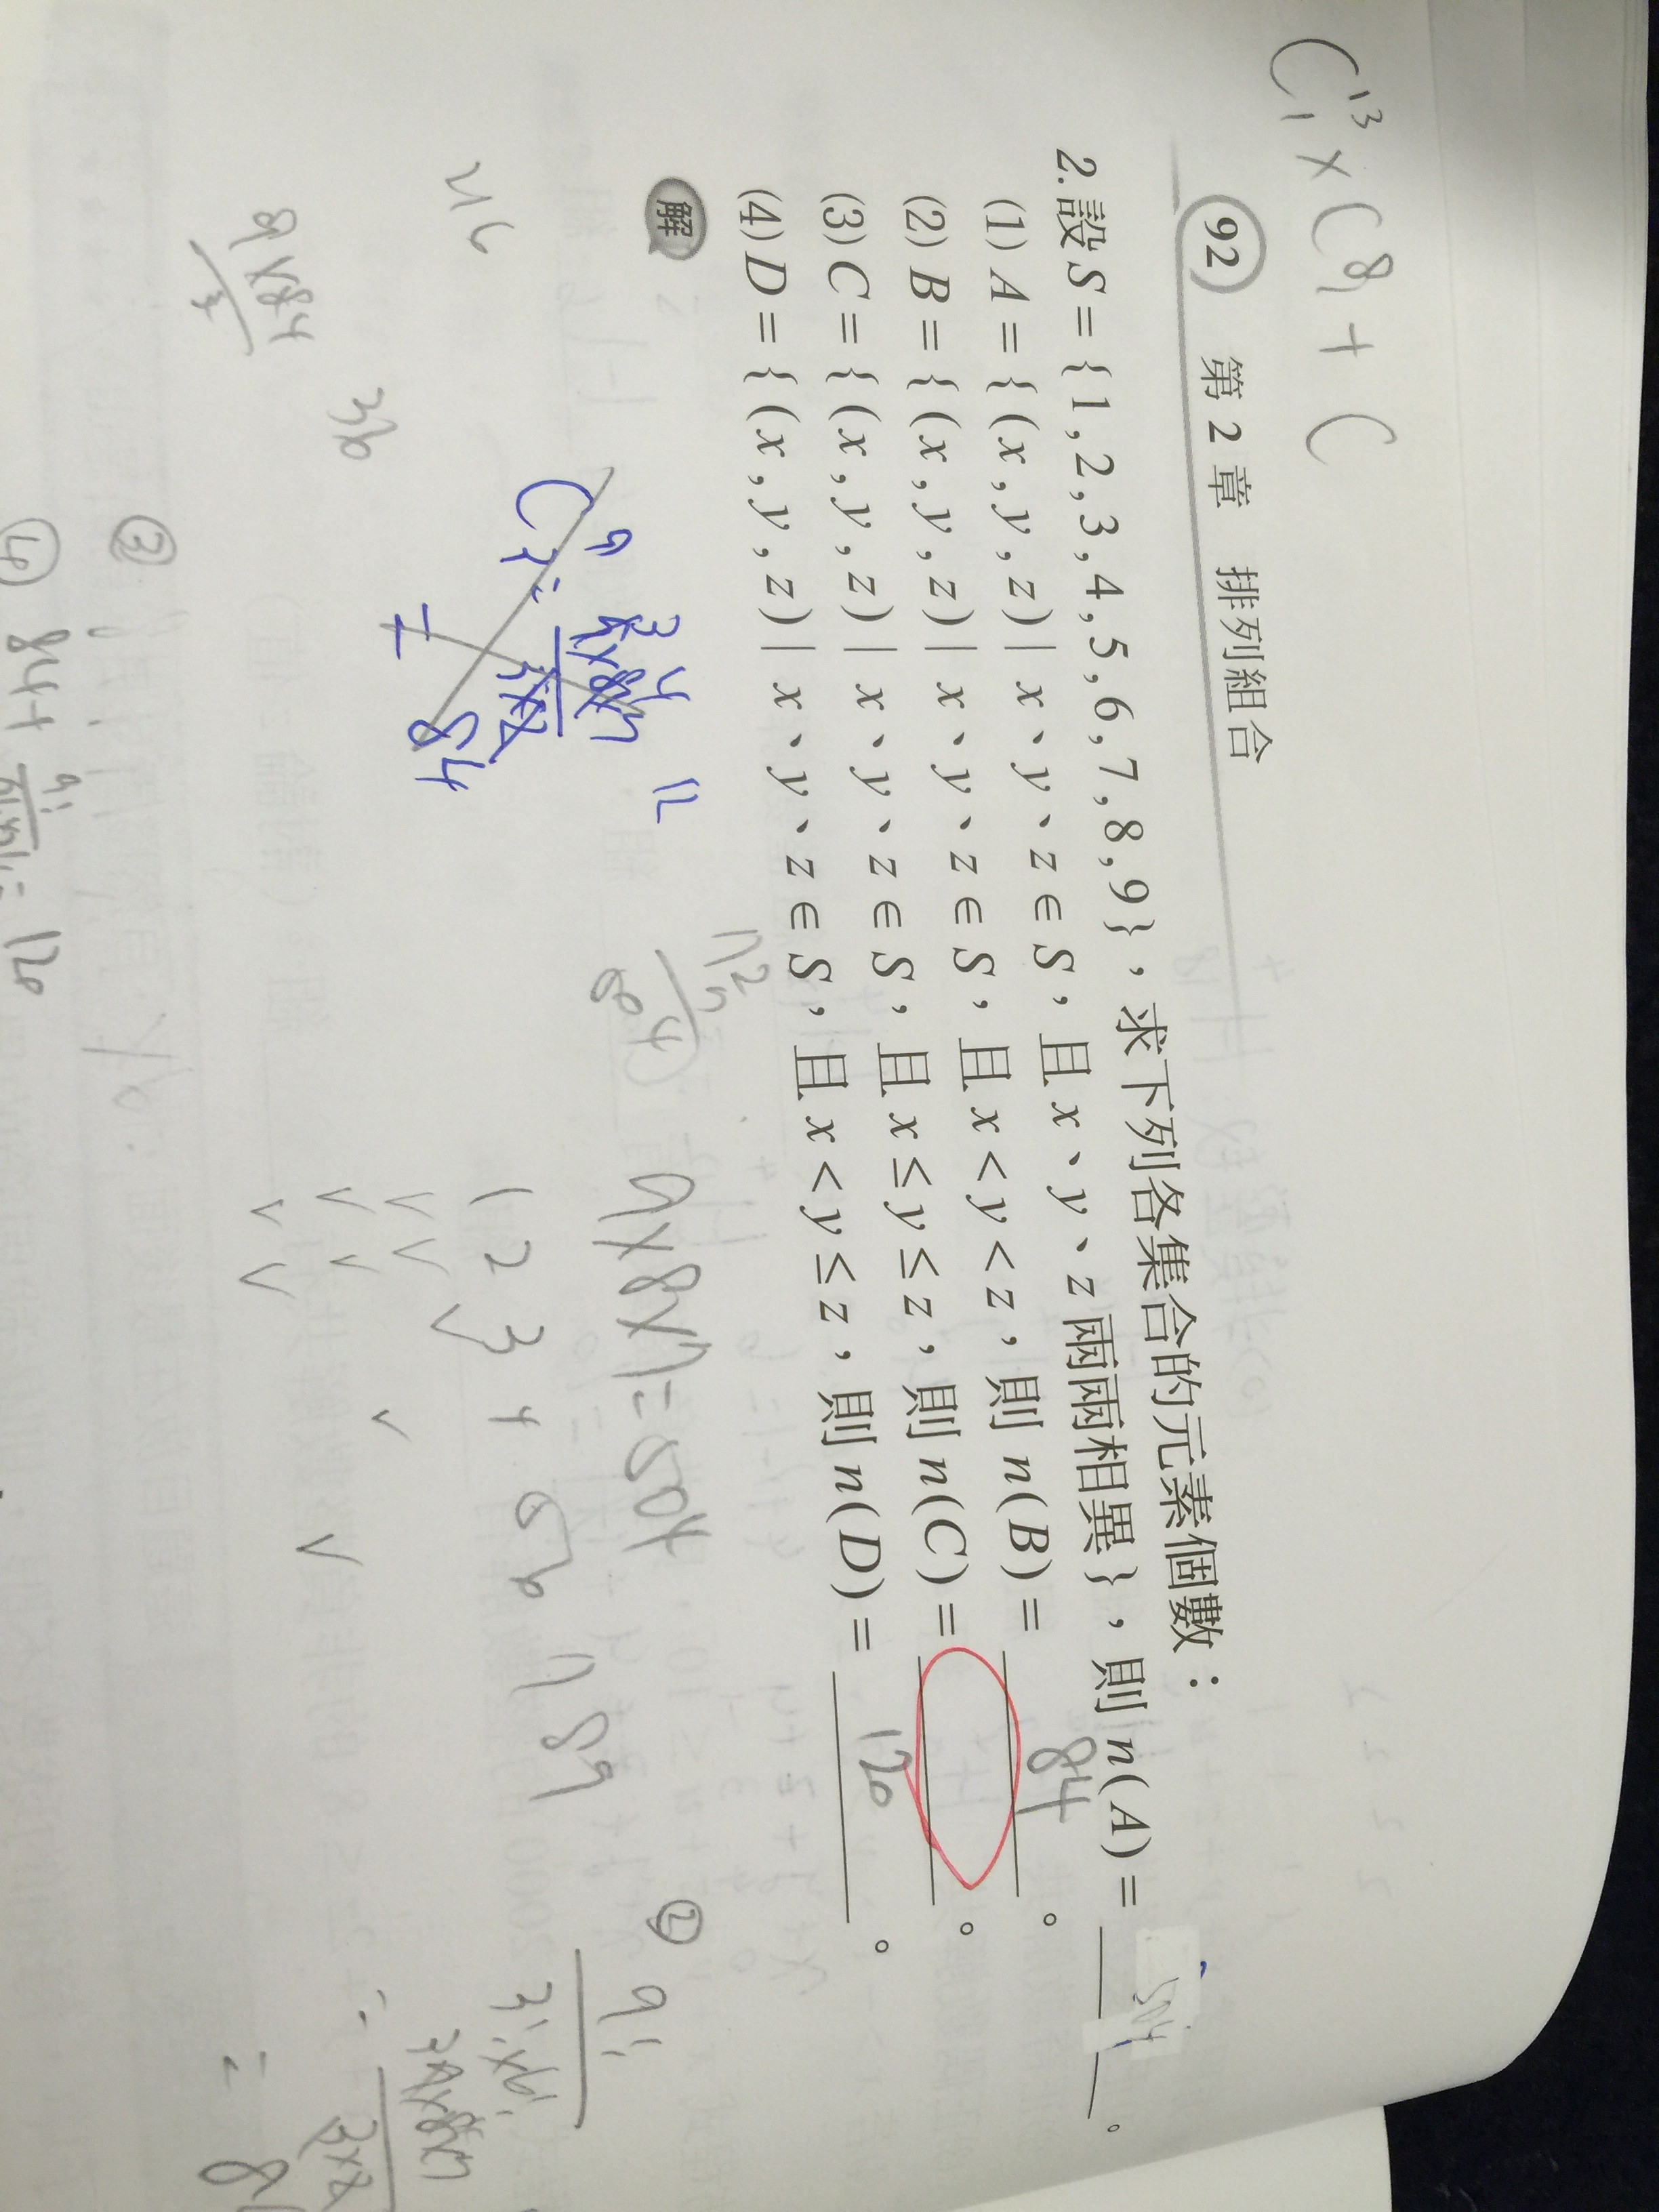 C¹³₁ × C⁸₁ + C
92 第2章 排列組合
2.設S={1,2,3,4,5,6,7,8,9},求下列各集合的元素個數:
(1) A={(x,y,z)|x、y、z∈S,且x、y、z兩兩相異},則n(A)= 504。
(2) B={(x,y,z)|x、y、z∈S,且x<y<z,則n(B)= 84。
(3) C={(x,y,z)|x、y、z∈S,且x≤y≤z,則n(C)= 。
(4) D={(x,y,z)|x、y、z∈S,且x<y≤z,則n(D)= 120。
解
9×8×7=504
1 2 3 4 5 6 7 8 9
216
36
C⁹₃
84
12
② 9!
3!×6!
③
④ 84+
=120